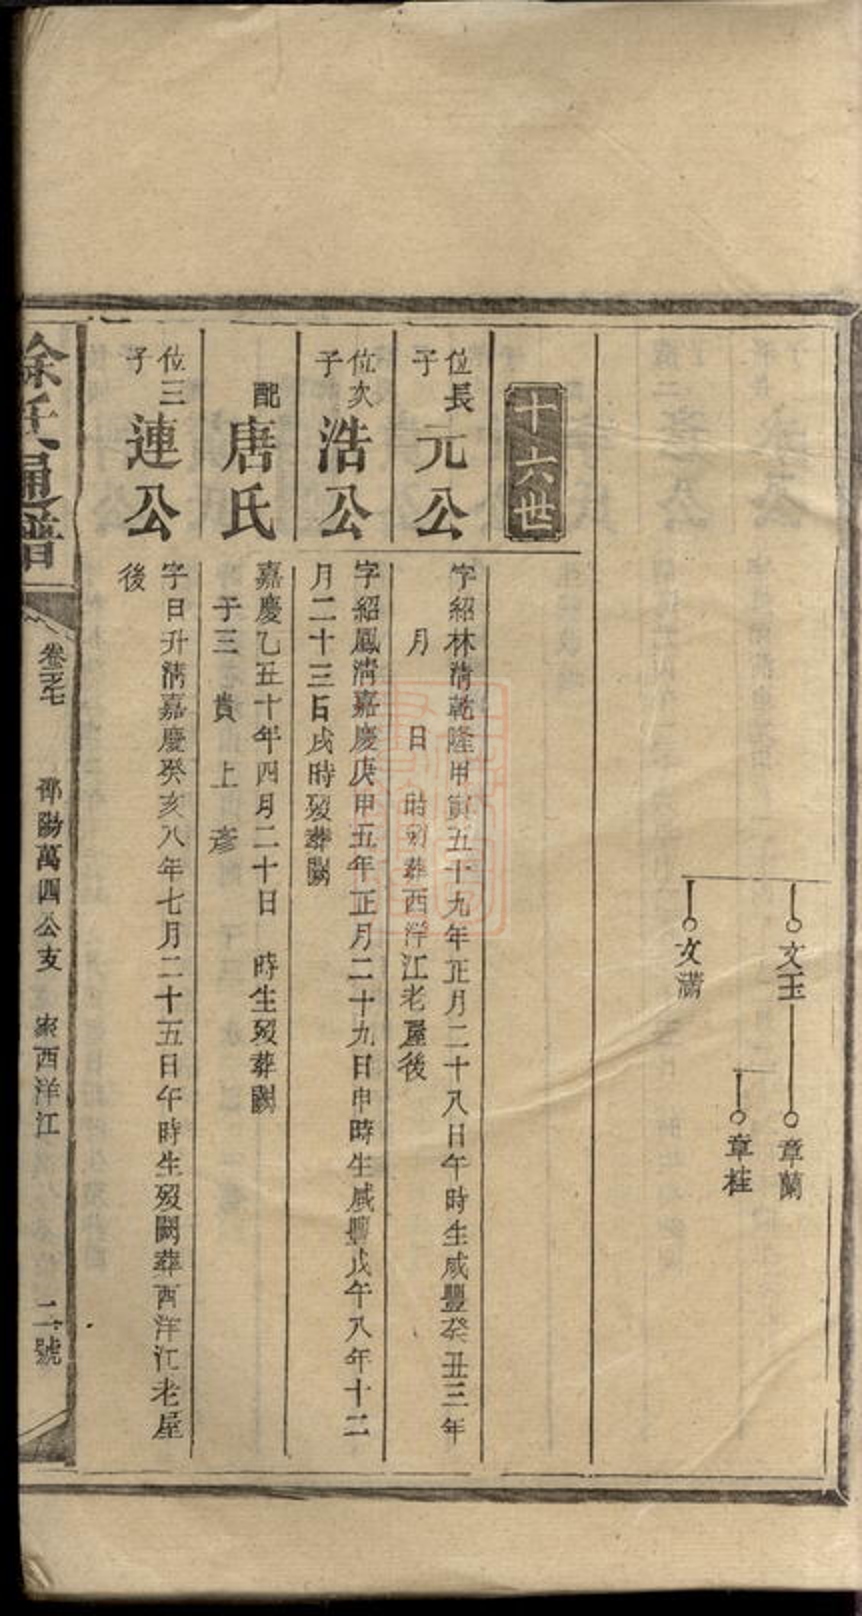 文玉
章蘭
章桂
文瀟
十六世
位長子
元公
字紹林清乾隆甲寅五十九年正月二十八日午時生咸豐癸丑三年
月 日 時歿葬西洋江老屋後
位次子
浩公
字紹鳳清嘉慶庚申五年正月二十九日申時生咸豐戊午八年十二
月二十三日戌時歿葬闕
配
唐氏
嘉慶乙丑十年四月二十日 時生歿葬闕
于三 貴 上 彥
位三子
連公
字日升清嘉慶癸亥八年七月二十五日午時生歿闕葬西洋江老屋
後
徐氏通譜
邵陽萬四公支
西洋江
二號